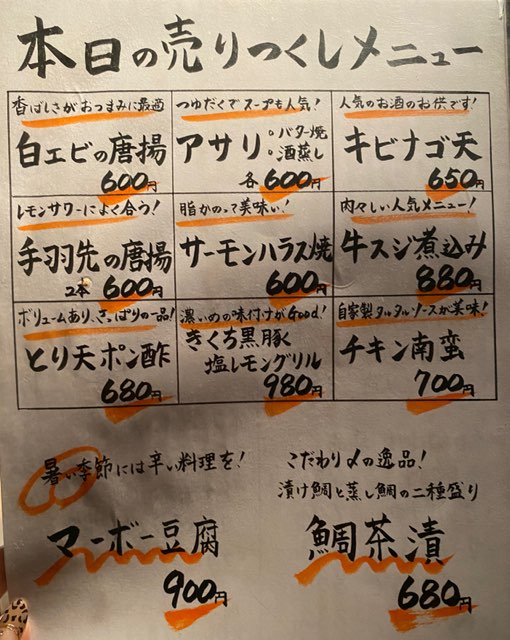 本日の売りつくしメニュー
香ばしさがおつまみに最適
白エビの唐揚
600円
つゆだくでスープも人気！
アサリ
・バター焼
・酒蒸し
各600円
人気のお酒のお供です！
キビナゴ天
650円
レモンサワーによく合う！
手羽先の唐揚
2本 600円
脂がのって美味い！
サーモンハラス焼
600円
肉々しい人気メニュー！
牛スジ煮込み
880円
ボリュームあり、さっぱりの一品！
とり天ポン酢
680円
濃いめの味付けがGood！
きくち黒豚
塩レモングリル
980円
自家製タルタルソースが美味！
チキン南蛮
700円
暑い季節には辛い料理を！
マーボー豆腐
900円
こだわり〆の逸品！
漬け鯛と蒸し鯛の二種盛り
鯛茶漬
680円